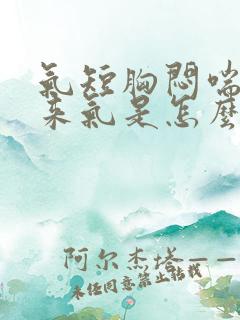 氣短胸悶喘
來氣是怎麼
阿尔杰塔——
未经同意禁止转载